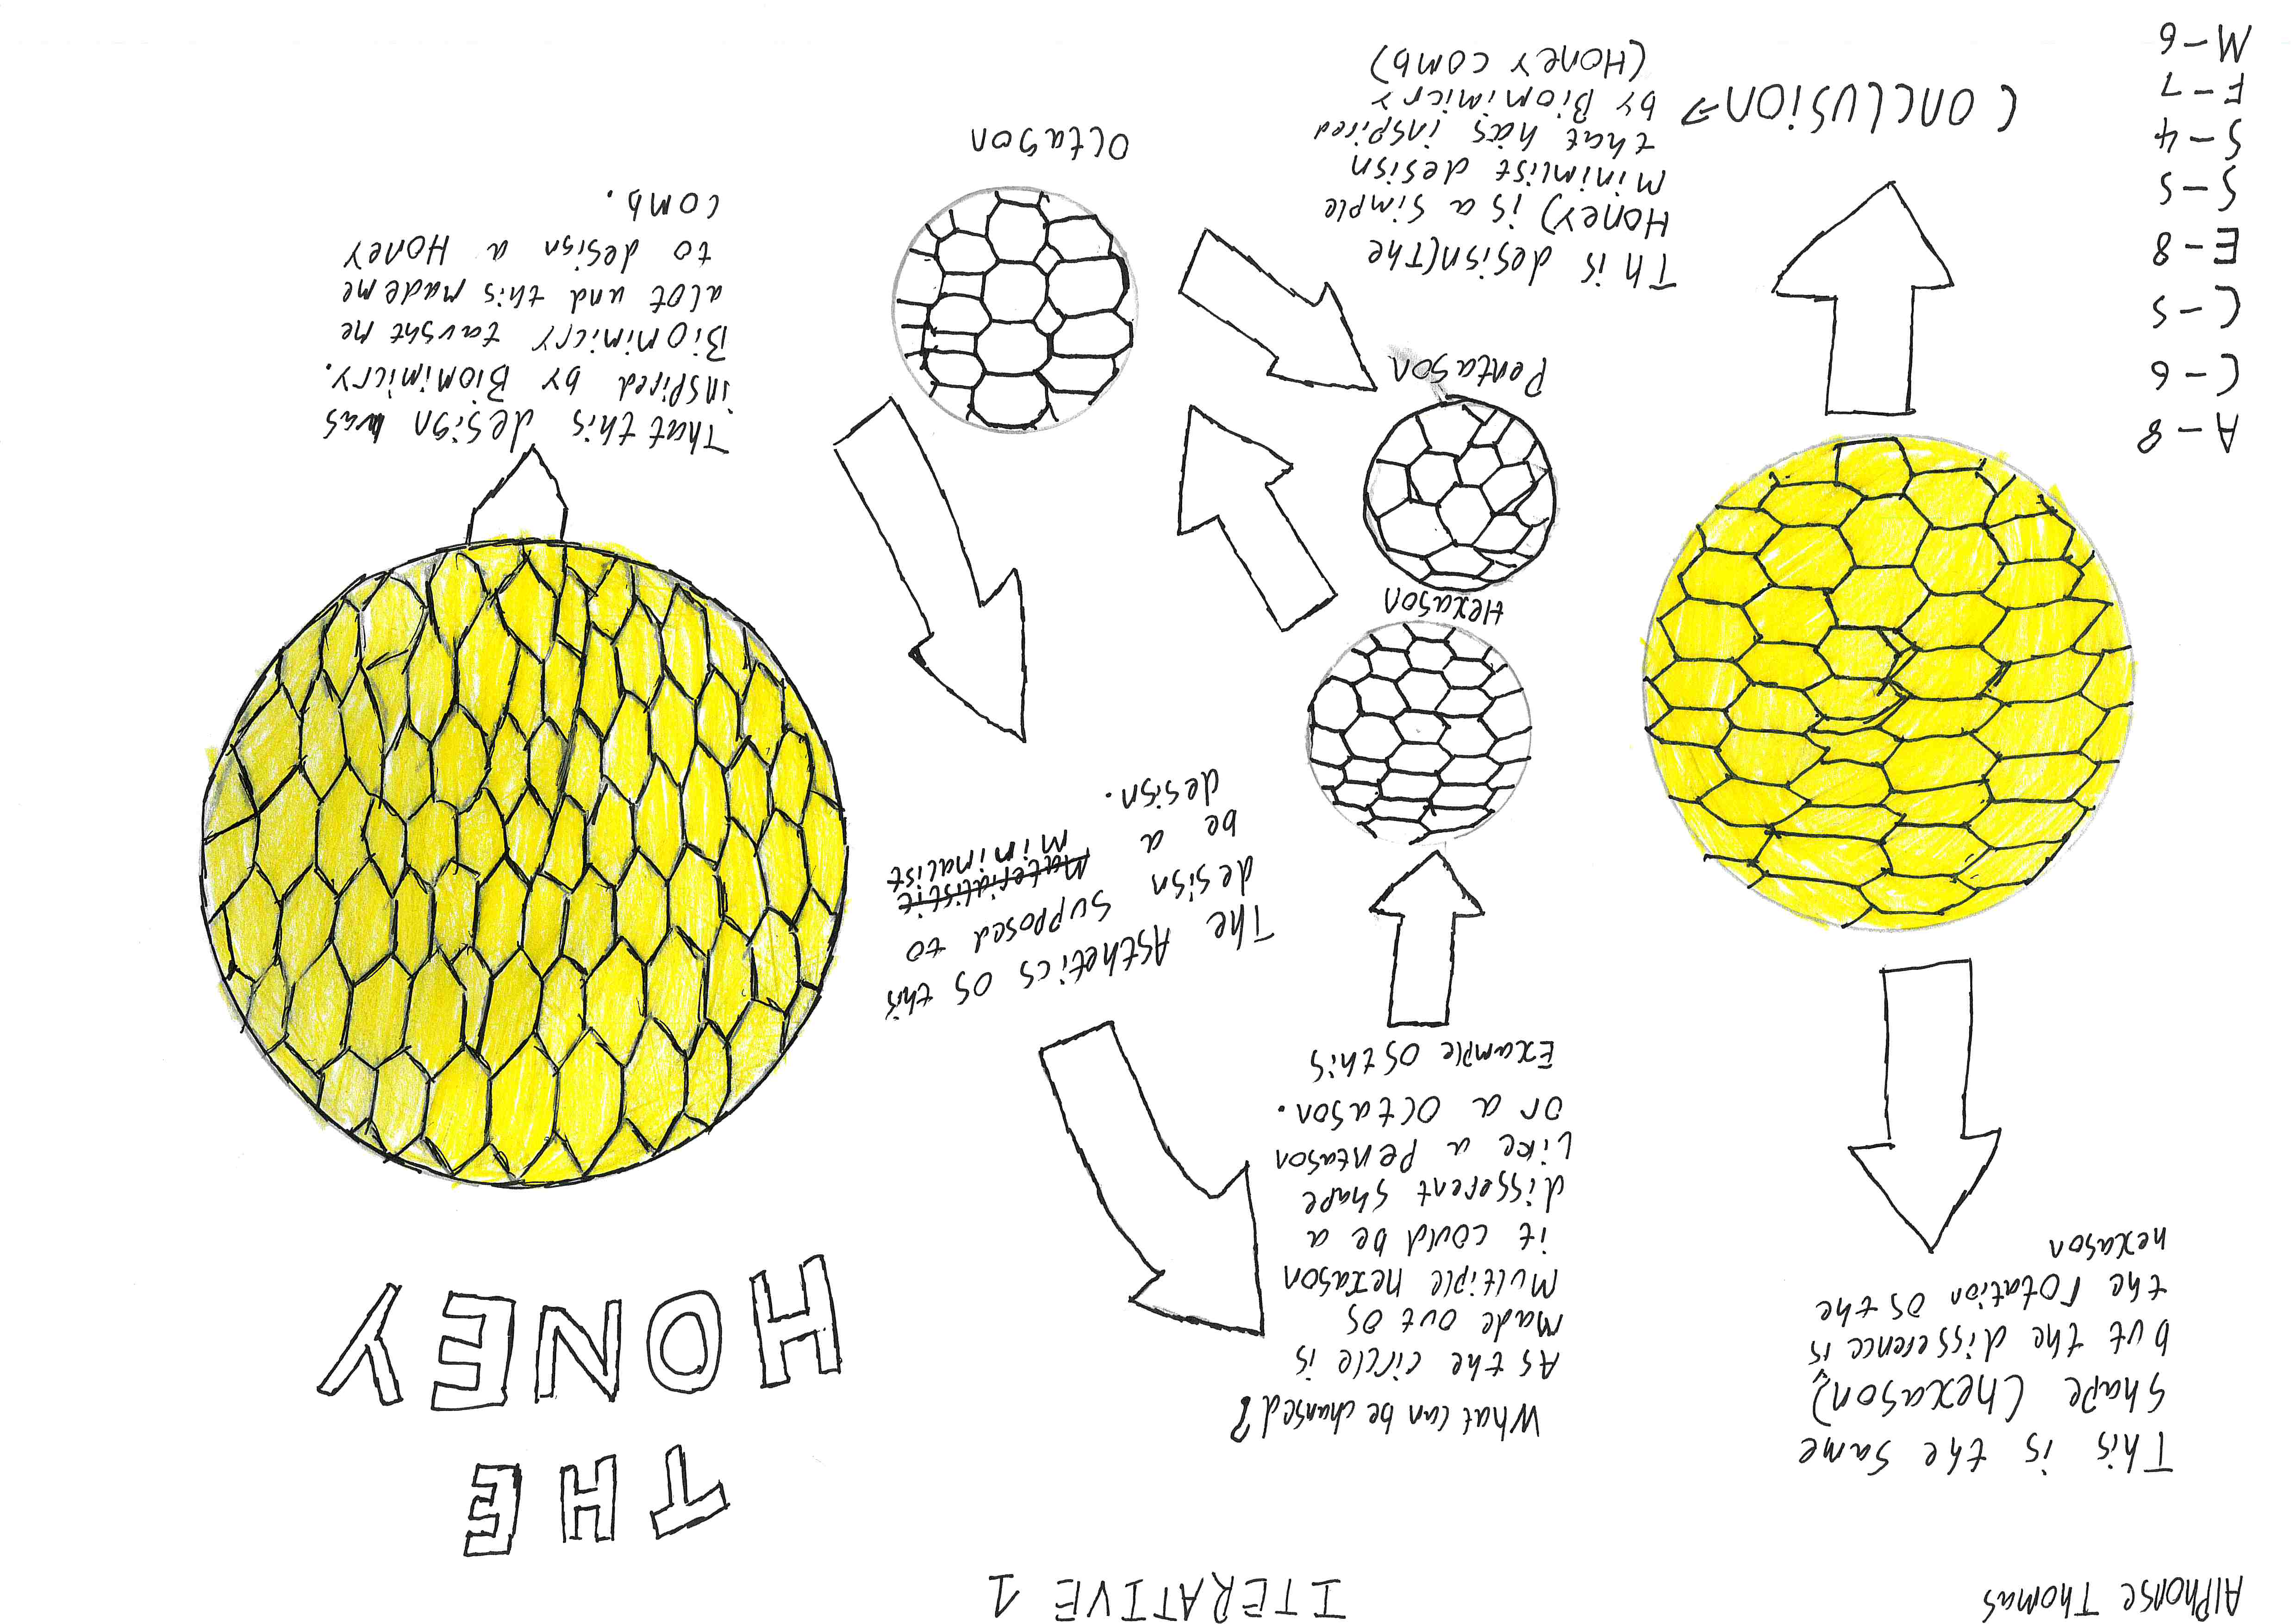 Alphonse Thomas
ITERATIVE 1
THE
HONEY
This is the same
shape (hexagon),
but the difference is
the rotation of the
hexagon
What can be changed?
As the circle is
made out of
multiple hexagon
it could be a
different shape
like a Pentagon
or a octagon.
Example of this
The Asthetics of this
design supposed to
be a Materialistic
mininalist
design.
Hexagon
Pentagon
Octagon
That this design was
inspired by Biomimicry.
Biomimicry taught me
alot and this made me
to design a Honey
comb.
A-8
C-6
C-5
E-8
S-5
S-4
F-7
M-6
Conclusion →
This design (The
Honey) is a simple
minimlist design
that has inspired
by Biomimicry
(Honey comb)